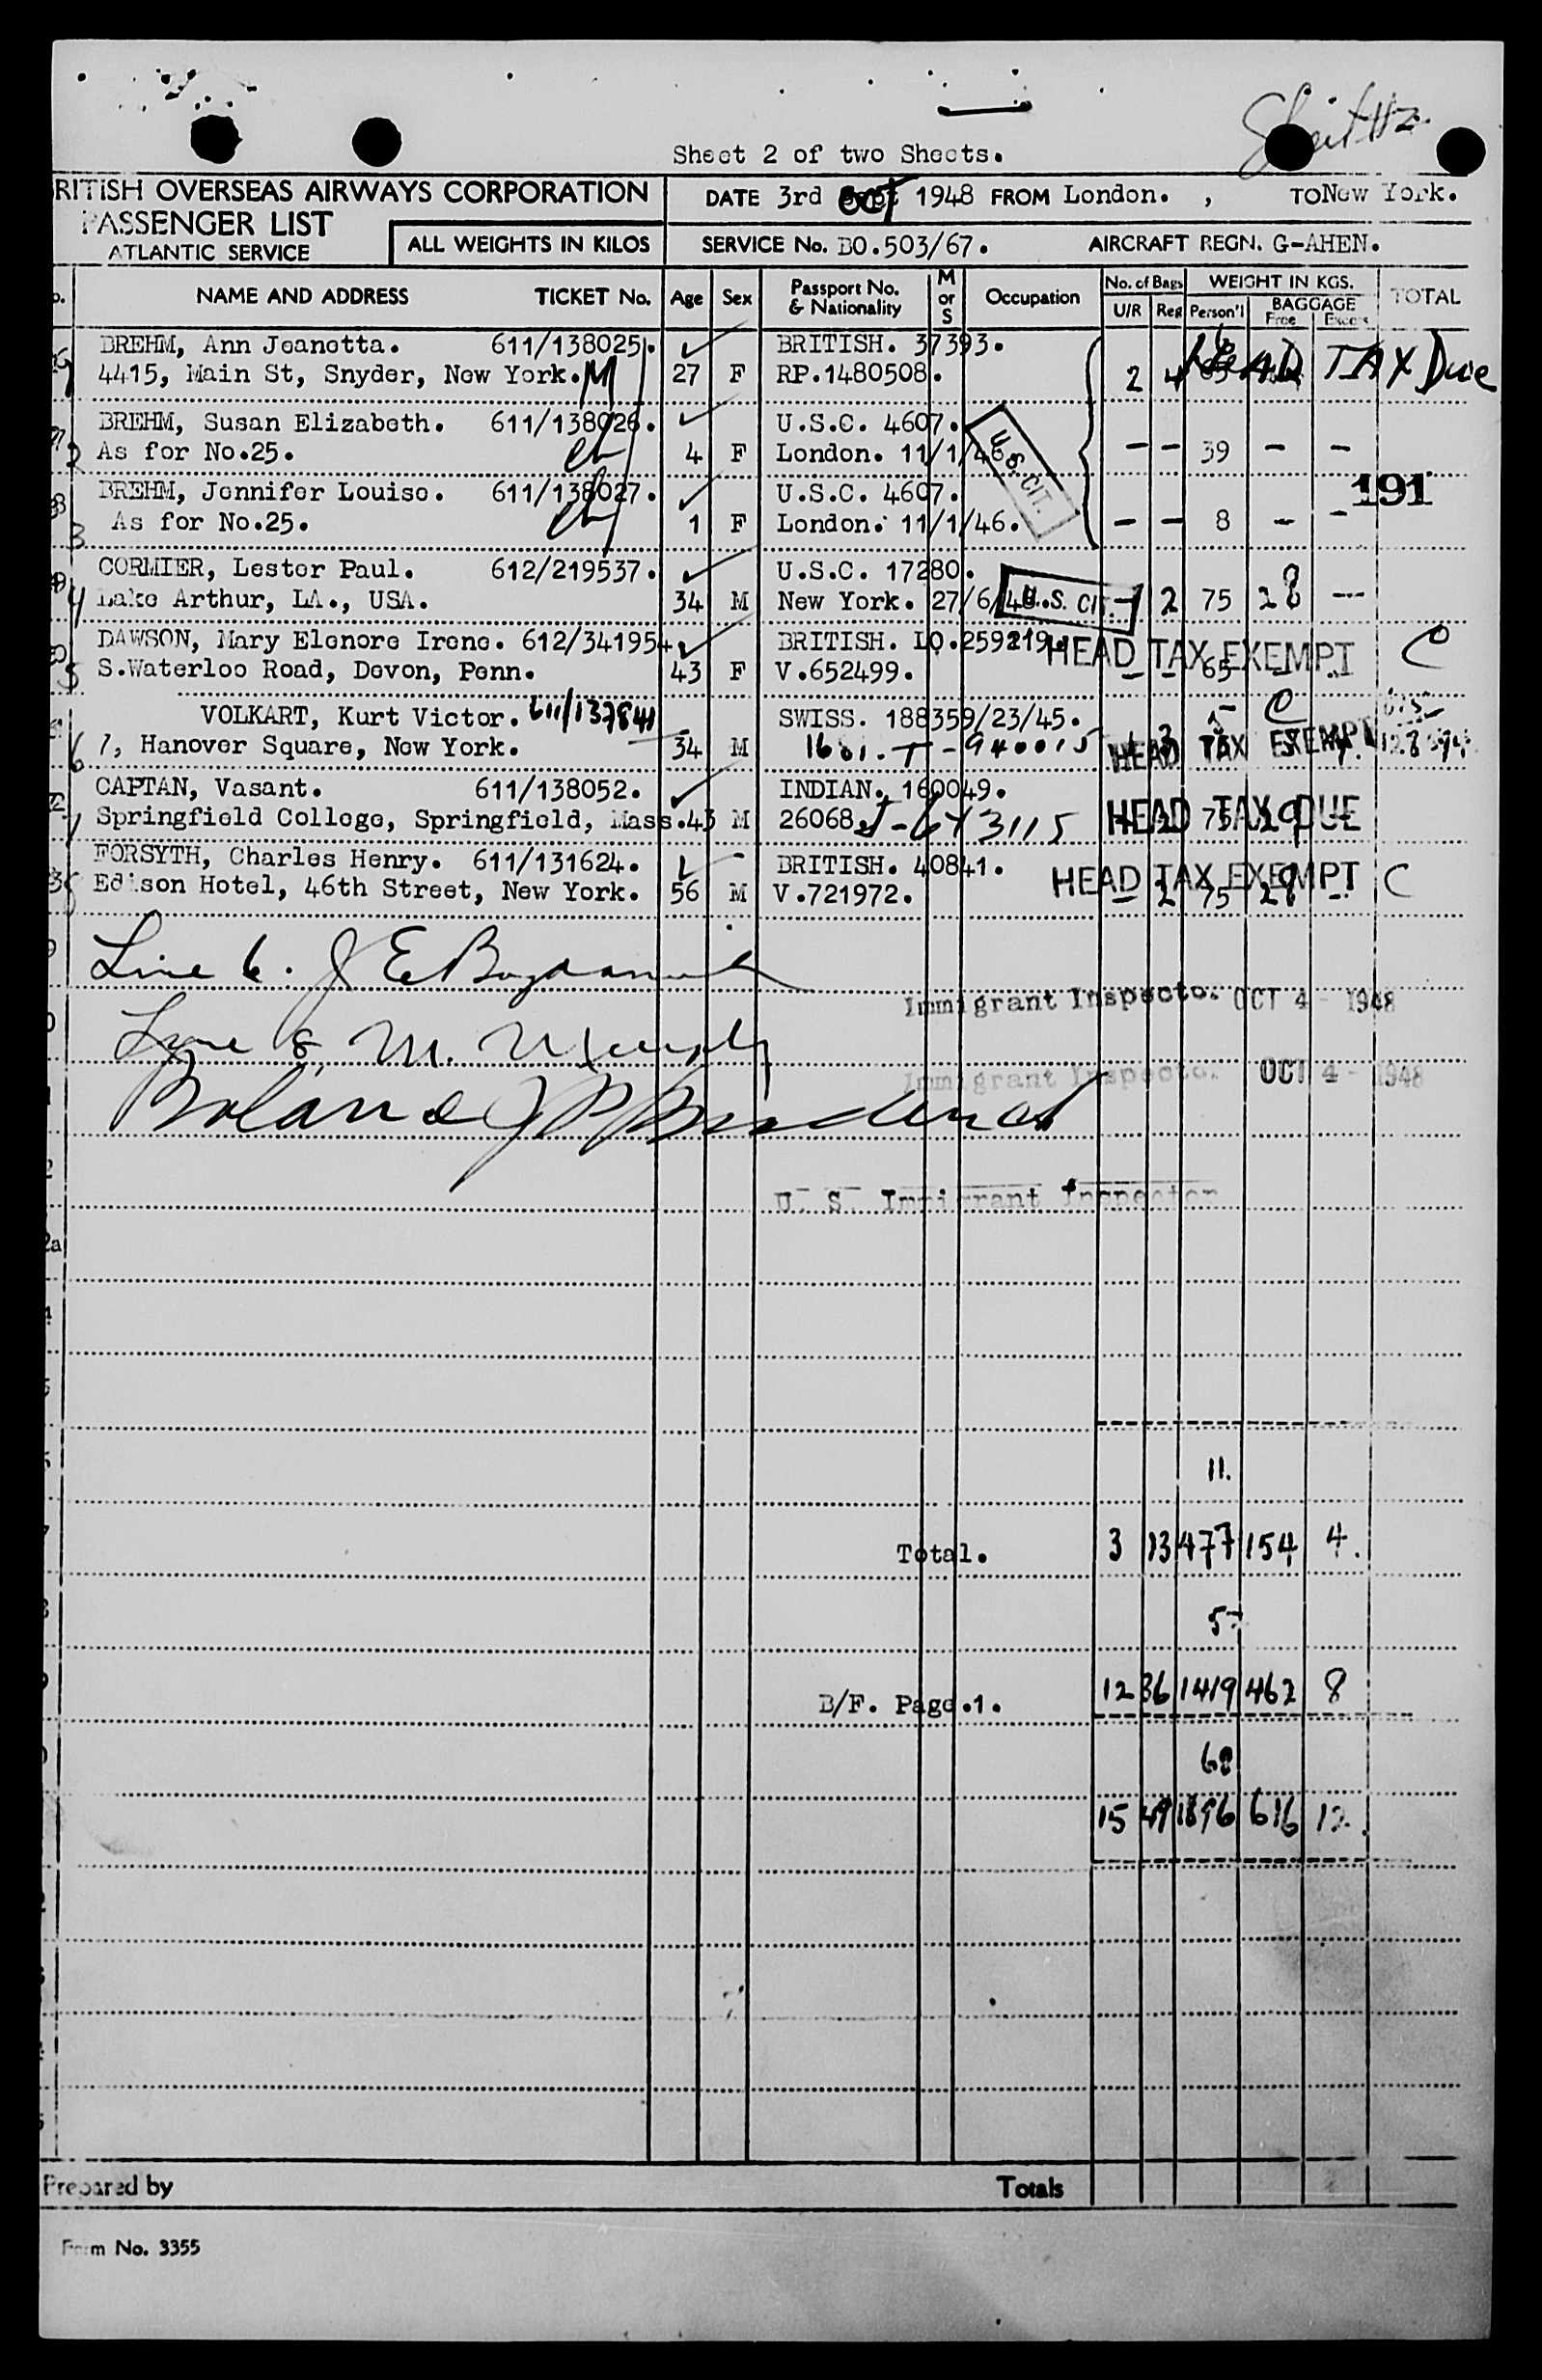 Sheet 2 of two Sheets.
BRITISH OVERSEAS AIRWAYS CORPORATION
PASSENGER LIST
ATLANTIC SERVICE
ALL WEIGHTS IN KILOS
DATE 3rd Oct 1948 FROM London. , TO New York.
SERVICE No. BO.503/67. AIRCRAFT REGN. G-AHEN.
NAME AND ADDRESS TICKET No. Age Sex Passport No. & Nationality M or S Occupation No. of Bags U/R Reg WEIGHT IN KGS. Person'l BAGGAGE Free Excess TOTAL
BREHM, Ann Jeanetta. 611/138025. BRITISH. 37393.
4415, Main St, Snyder, New York. M 27 F RP.1480508. 2 4 HEAD TAX Due
BREHM, Susan Elizabeth. 611/138026. U.S.C. 4607.
2 As for No.25. 4 F London. 11/1/46. U.S. CIT. – – 39 – –
BREHM, Jennifer Louise. 611/138027. U.S.C. 4607. 191
3 As for No.25. 1 F London. 11/1/46. – – 8 – –
CORMIER, Lester Paul. 612/219537. U.S.C. 17280.
4 Lake Arthur, LA., USA. 34 M New York. 27/6/46. U.S. CIT. – 2 75 28 –
DAWSON, Mary Elenore Irene. 612/341954 BRITISH. LO.259219. HEAD TAX EXEMPT C
5 S.Waterloo Road, Devon, Penn. 43 F V.652499. – – 65 – –
VOLKART, Kurt Victor. 611/137841 SWISS. 188359/23/45. 5 C
6 7, Hanover Square, New York. 34 M HEAD TAX EXEMPT
CAPTAN, Vasant. 611/138052. INDIAN. 160049.
7 Springfield College, Springfield, Mass. 43 M 26068. HEAD TAX DUE
FORSYTH, Charles Henry. 611/131624. BRITISH. 40841. HEAD TAX EXEMPT C
8 Edison Hotel, 46th Street, New York. 56 M V.721972. – 2 75 28 –
Line 6. J E
Immigrant Inspector OCT 4 - 1948
8 M.
Immigrant Inspector OCT 4 - 1948
Roland J P
U. S. Immigrant Inspector
11.
Total. 3 13 477 154 4.
57
B/F. Page.1. 12 36 1419 462 8
68
15 49 1896 616 12.
Prepared by Totals
Form No. 3355